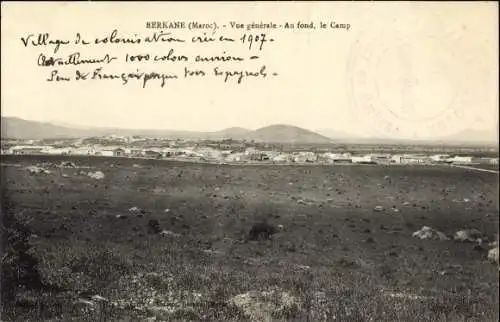 BERKANE (Maroc). - Vue générale - Au fond, le Camp
Village de colonisation créé en 1907.
Actuellement 1000 colons environ -
Peu de Français presque tous Espagnols